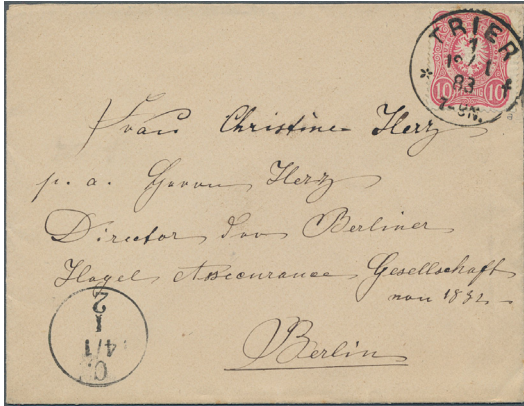 TRIER
1
83
7-8N.
10 10
Frau Christine Herz
p. a. Herrn Herz
Director der Berliner
Hagel Assecuranz Gesellschaft
von 1832.
Berlin
C.
14/1
1
2